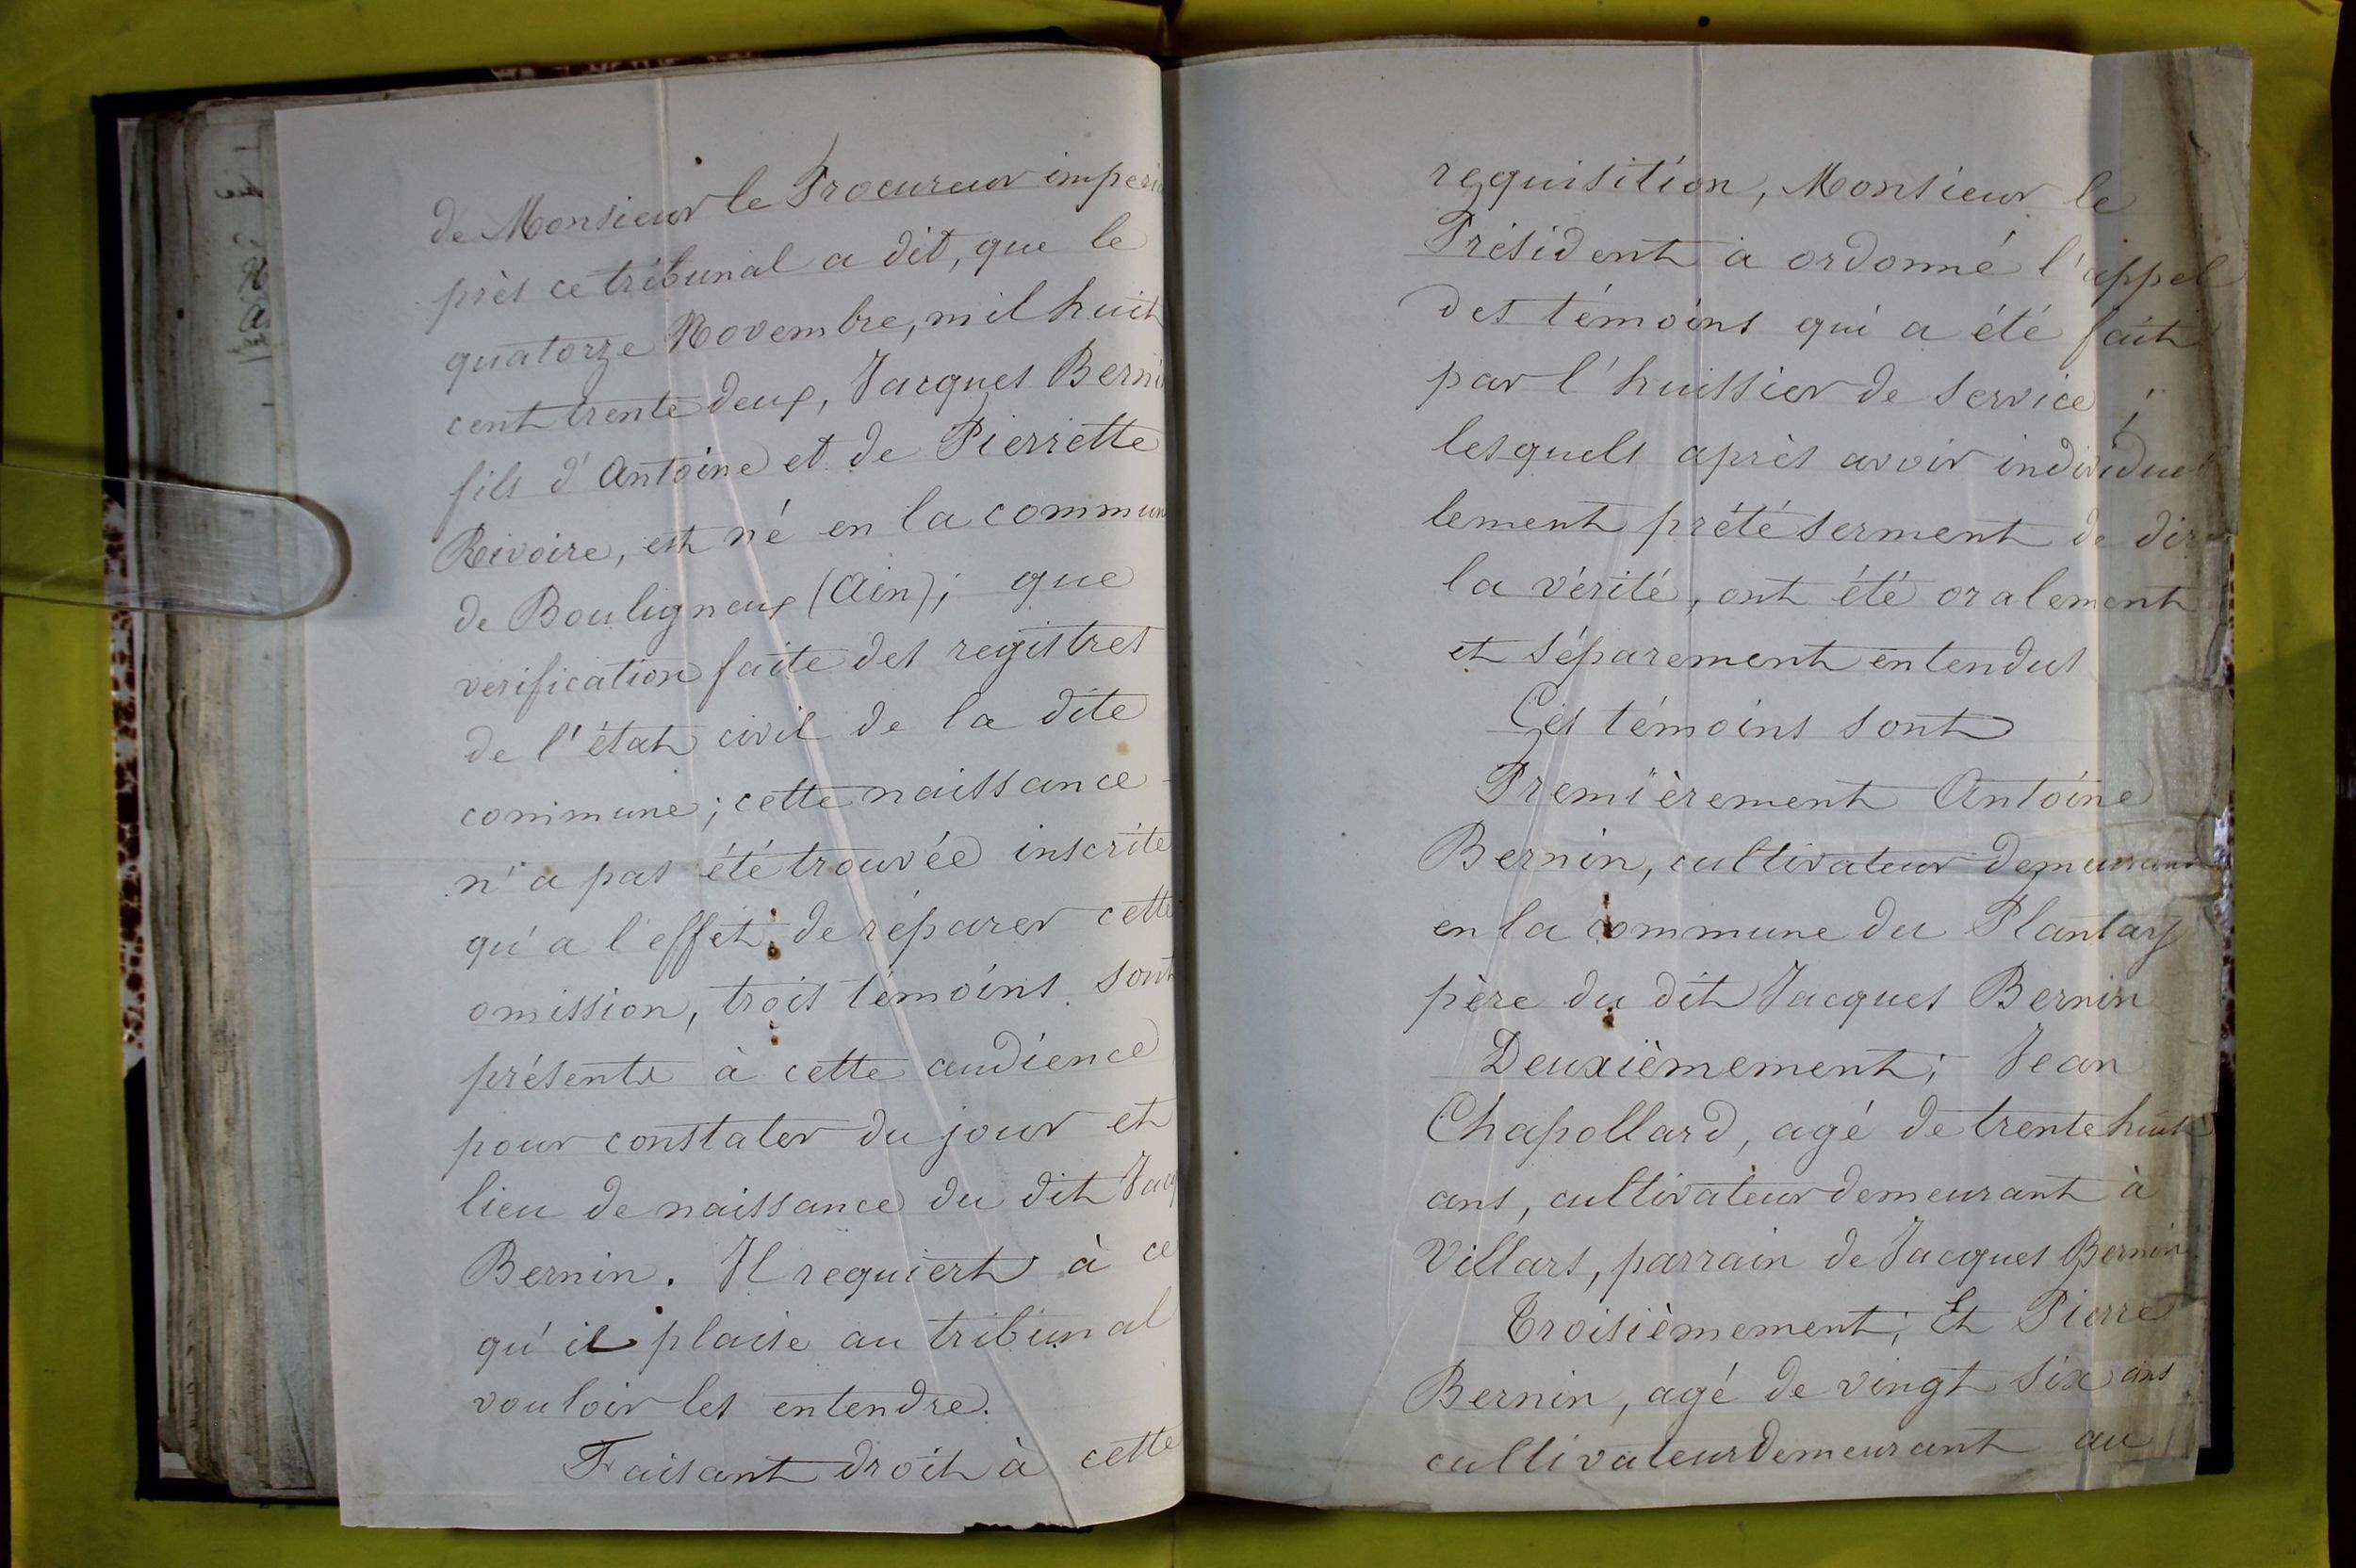 de Monsieur le Procureur imperia
près ce tribunal a dit, que le
quatorze Novembre, mil huit
cent trente deux, Jacques Bernin
fils d'Antoine et de Pierrette
Rivoire, est né en la commun
de Bouligneux (Ain); que
verification faite des registres
de l'état civil de la dite
commune; cette naissance
n'a pas été trouvée inscrite
qu'a l'effet de réparer cette
omission, trois témoins sont
présents à cette audience
pour constater du jour et
lieu de naissance du dit Jacq
Bernin. Il requiert à ce
qu'il plaise au tribunal
vouloir les entendre.
Faisant droit à cette
requisition, Monsieur le
Président a ordonné l'appel
des témoins qui a été fait
par l'huissier de service;
lesquels après avoir individuel
lement prété serment de dire
la vérité, ont été oralement
et séparement entendus
Ces témoins sont
Premièrement Antoine
Bernin, cultivateur demeurant
en la commune du Plantay
père du dit Jacques Bernin
Deuxièmement; Jean
Chapollard, agé de trente huit
ans, cultivateur demeurant à
Villars, parrain de Jacques Bernin.
Troisièmement; Et Pierre
Bernin, agé de vingt six ans
cultivateur demeurant au